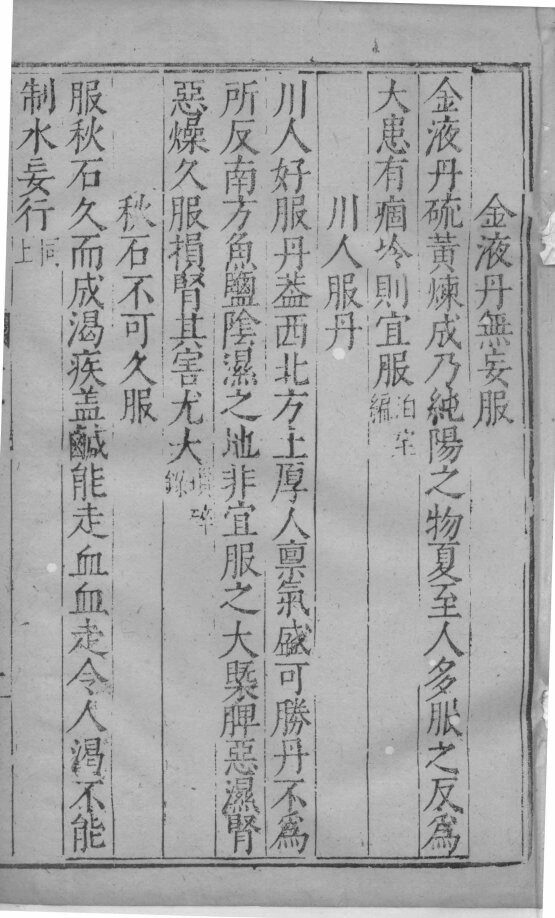 金液丹無妄服
金液丹硫黃煉成乃純陽之物夏至人多服之反為
大患有痼冷則宜服泊宅編
川人服丹
川人好服丹蓋西北方土厚人禀氣盛可勝丹不為
所反南方魚鹽陰濕之地非宜服之大槩脾惡濕腎
惡燥久服損腎其害尤大
秋石不可久服
服秋石久而成渴疾盖鹹能走血血走令人渴不能
制水妄行同上